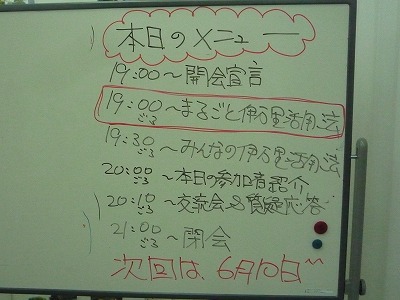 本日のメニュー
19:00～開会宣言
19:00ごろ～まるごと伊万里活用法
19:30ごろ～みんなの伊万里活用法
20:00ごろ～本日の参加者紹介
20:10ごろ～交流会&質疑応答
21:00ごろ～閉会
次回は、6月10日^^